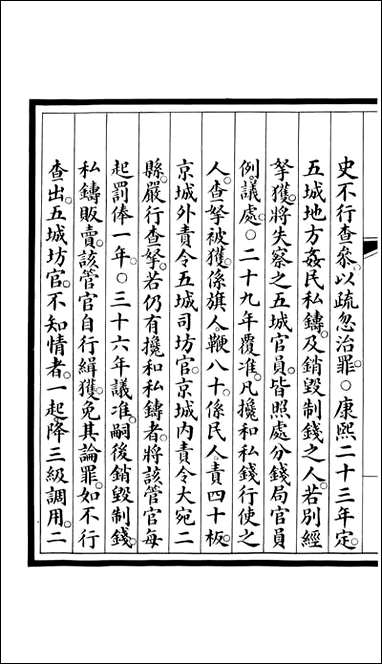 史不行查叅。以疏忽治罪。○康熙二十三年定。
五城地方姦民私鑄。及銷毀制錢之人。若別經
拏獲。將失察之五城官員。皆照處分錢局官員
例議處。○二十九年覆准。凡攙和私錢行使之
人。查拏被獲。係旗人。鞭八十。係民人責四十板。
京城外責令五城司坊官。京城內責令大宛二
縣。嚴行查拏。若仍有攙和私鑄者。將該管官每
起罰俸一年。○三十六年議准。嗣後銷毀制錢。
私鑄販賣。該管官自行緝獲。免其論罪。如不行
查出。五城坊官。不知情者。一起降三級調用。二